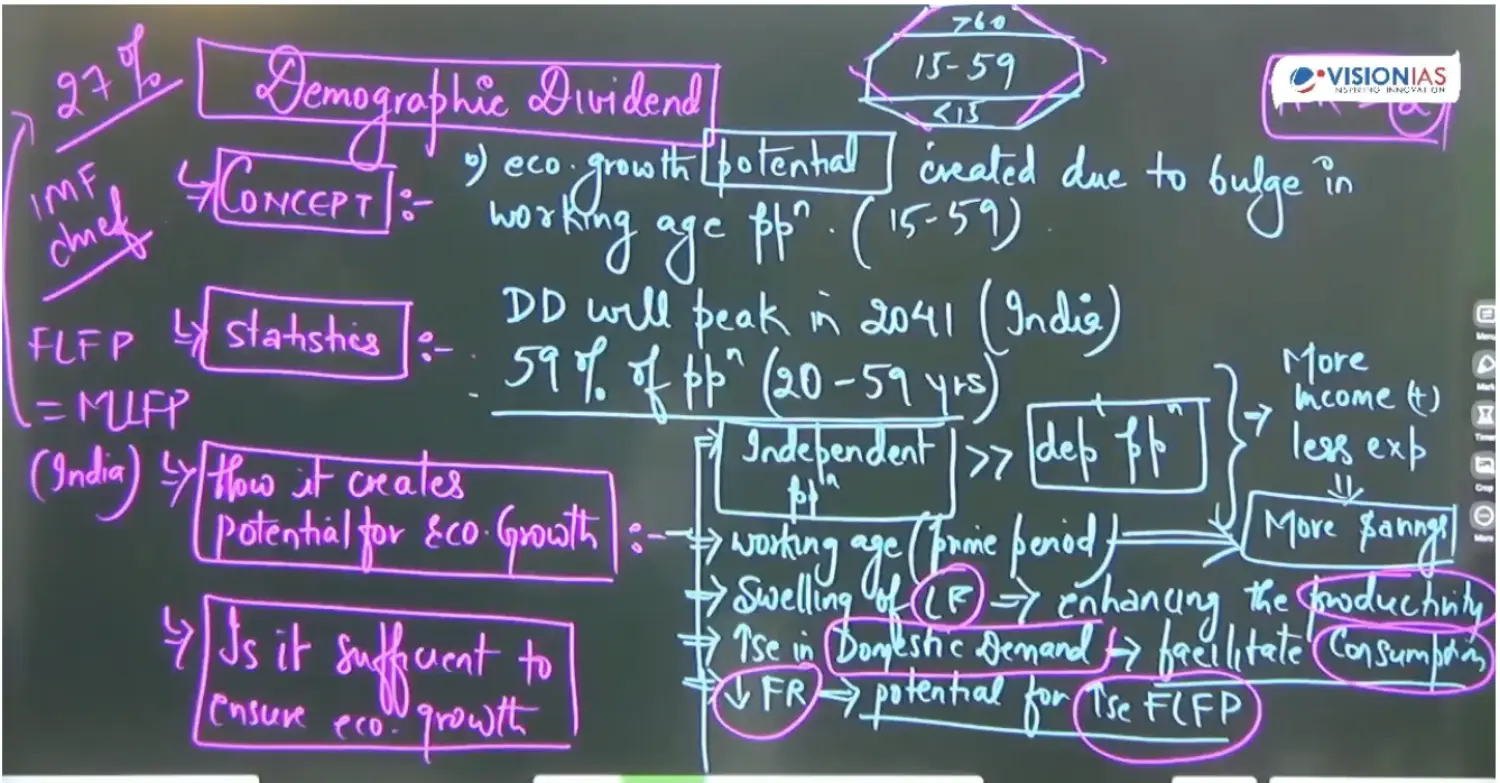 27%
Demographic Dividend
>60
15-59
<15
VISIONIAS
INSPIRING INNOVATION
2
IMF
chief
↳ CONCEPT :-
o) eco. growth potential created due to bulge in
working age ppⁿ. (15-59)
FLFP
= MLFP
(India)
↳ Statistics :-
DD will peak in 2041 (India)
59% of ppⁿ (20-59 yrs)
↳ How it creates
potential for Eco. Growth :-
Independent
ppⁿ
>>
dep ppⁿ
→ More
income (+)
less exp
⇓
More
→ working age (prime period)
→ Swelling of LF → enhancing the productivity
→ ↑se in Domestic Demand → facilitate Consumption
→ ↓ FR → potential for ↑se FLFP
↳ Is it sufficient to
ensure eco. growth
Menu
Mark
Timer
Crop
More